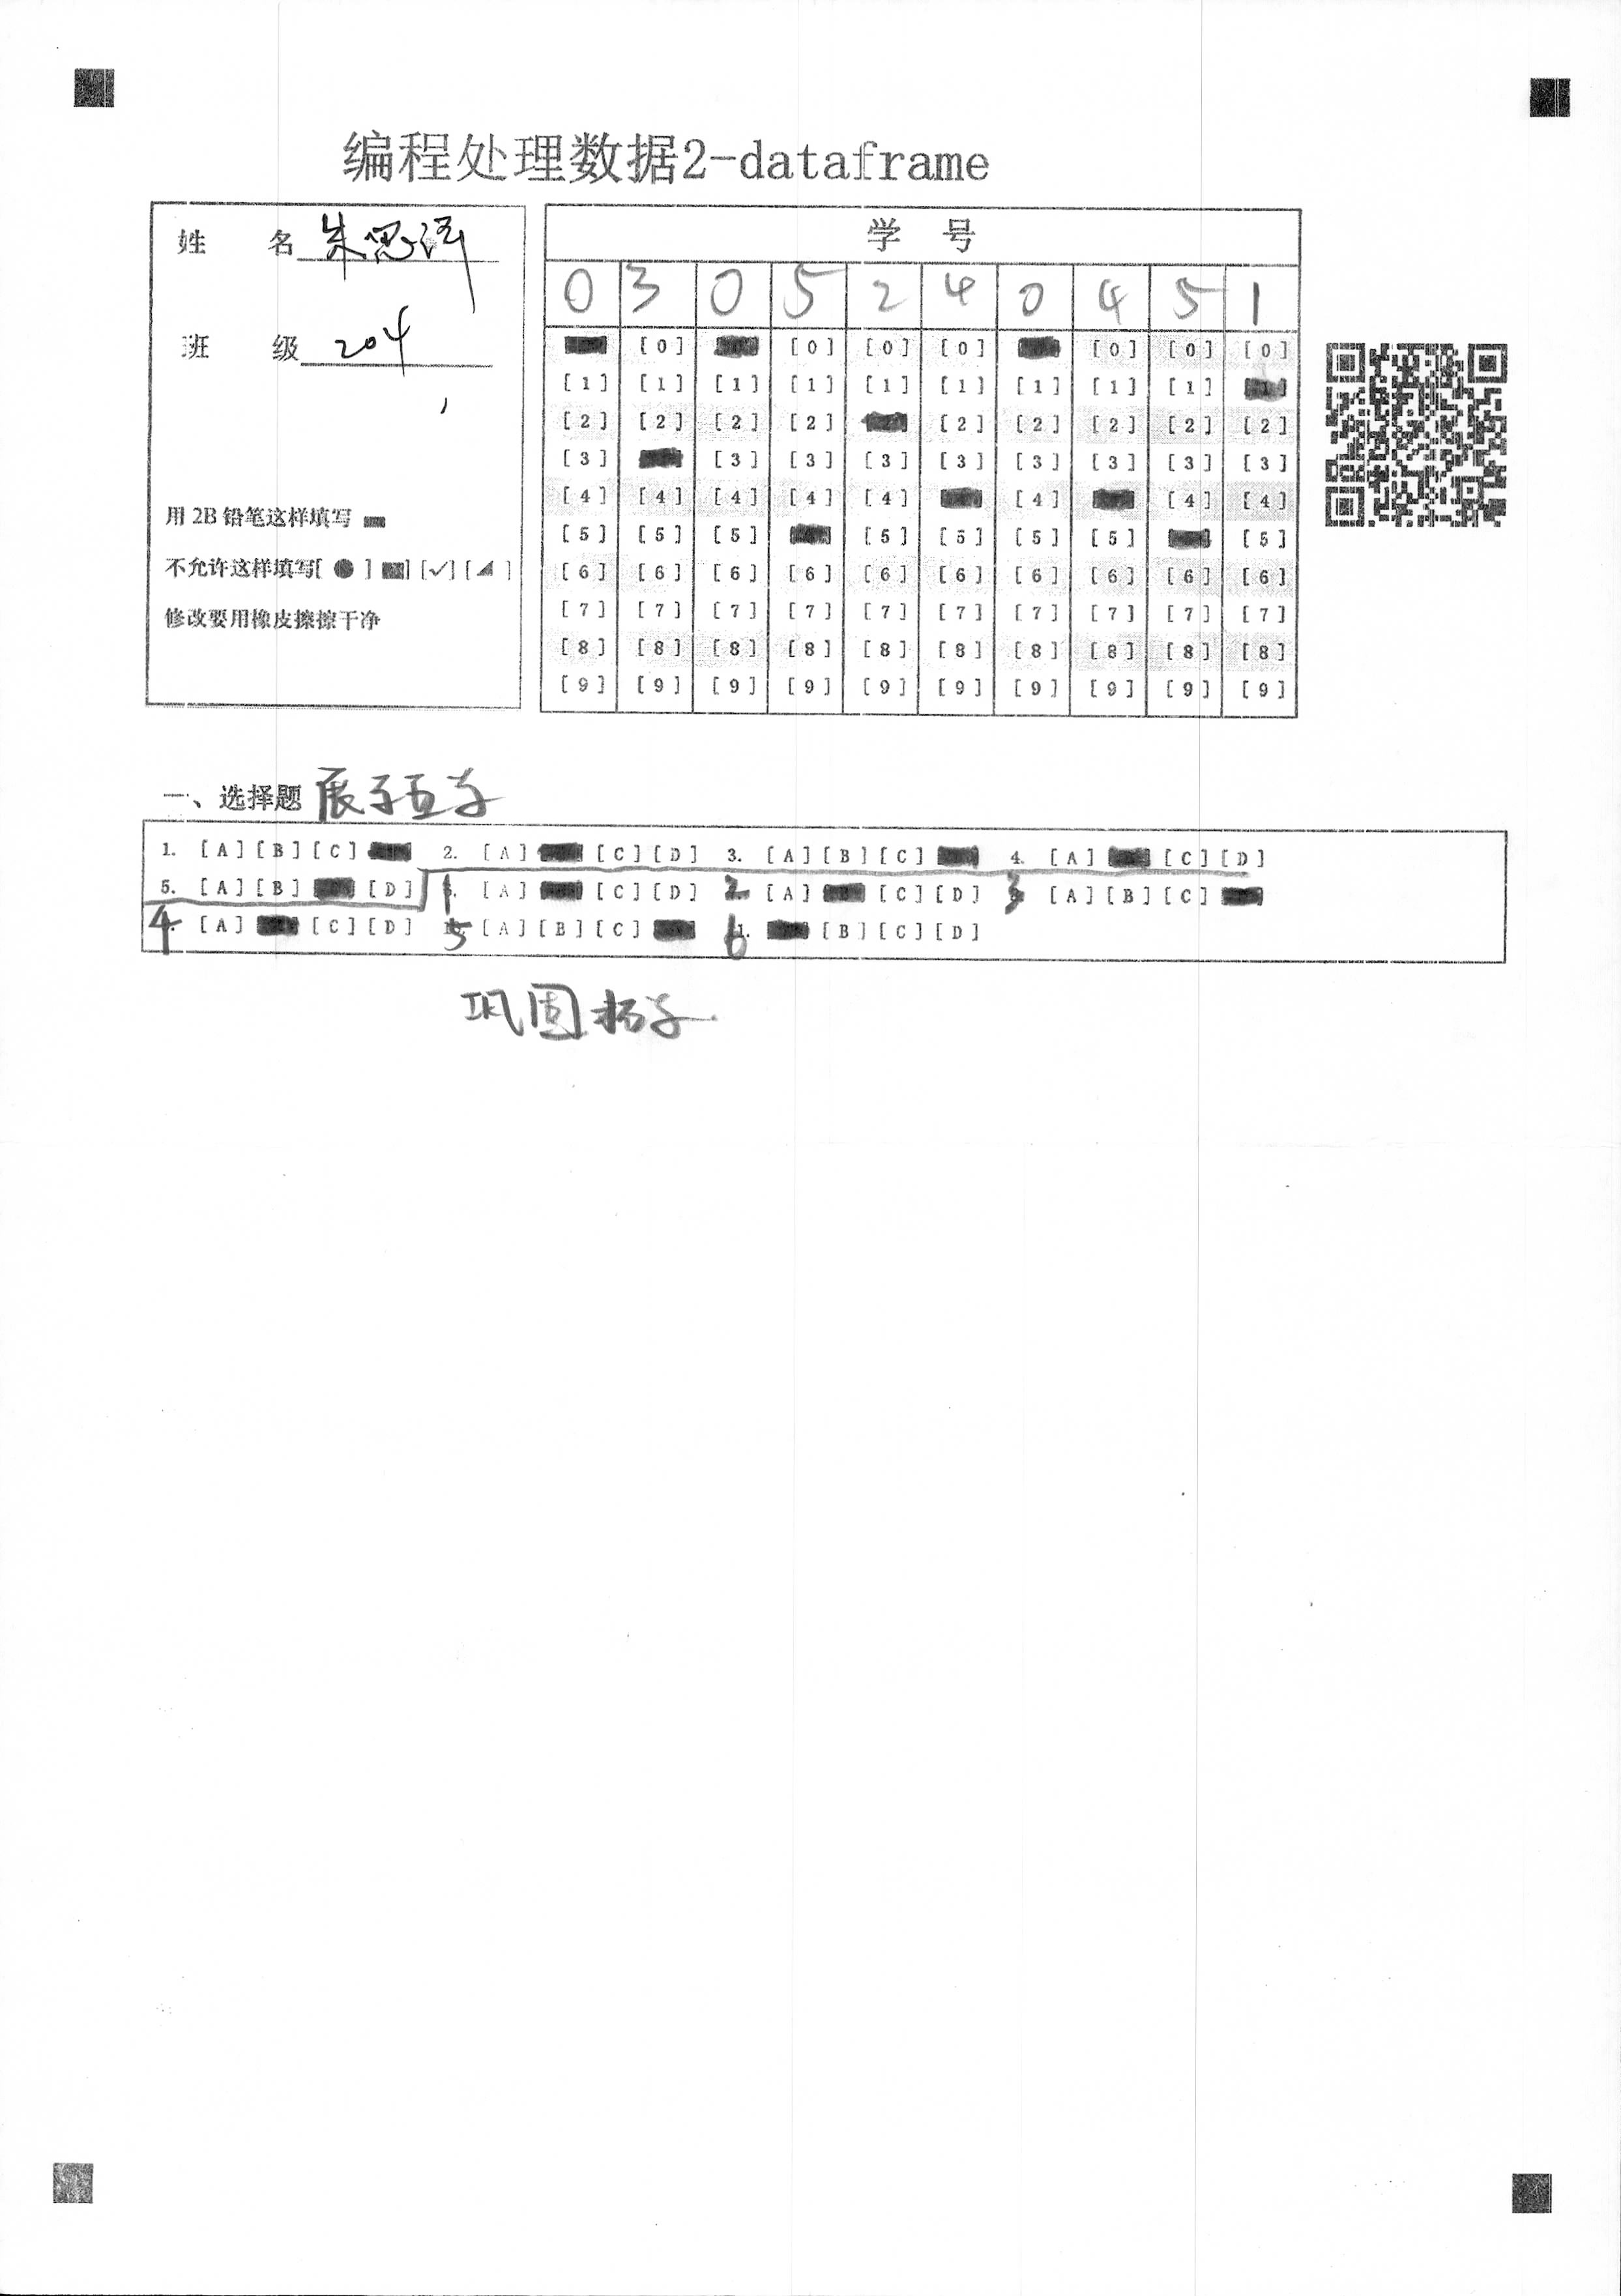 编程处理数据2-dataframe
姓 名 朱思语
班 级 204
用 2B 铅笔这样填写
不允许这样填写[ ● ] [■] [✓] [◢ ]
修改要用橡皮擦擦干净
学 号
0 3 0 5 2 4 0 4 5 1
[0] [0] [0] [0] [0] [0] [0]
[1] [1] [1] [1] [1] [1] [1] [1] [1] [1]
[2] [2] [2] [2] [2] [2] [2] [2] [2]
[3] [3] [3] [3] [3] [3] [3] [3] [3]
[4] [4] [4] [4] [4] [4] [4] [4]
[5] [5] [5] [5] [5] [5] [5] [5]
[6] [6] [6] [6] [6] [6] [6] [6] [6] [6]
[7] [7] [7] [7] [7] [7] [7] [7] [7] [7]
[8] [8] [8] [8] [8] [8] [8] [8] [8] [8]
[9] [9] [9] [9] [9] [9] [9] [9] [9] [9]
一、选择题 展示互学
1. [A] [B] [C] 2. [A] [C] [D] 3. [A] [B] [C] 4. [A] [C] [D]
5. [A] [B] [D] 1. [A] [C] [D] 2. [A] [C] [D] 3 [A] [B] [C]
4. [A] [C] [D] 5 [A] [B] [C] 6. [B] [C] [D]
巩固拓学